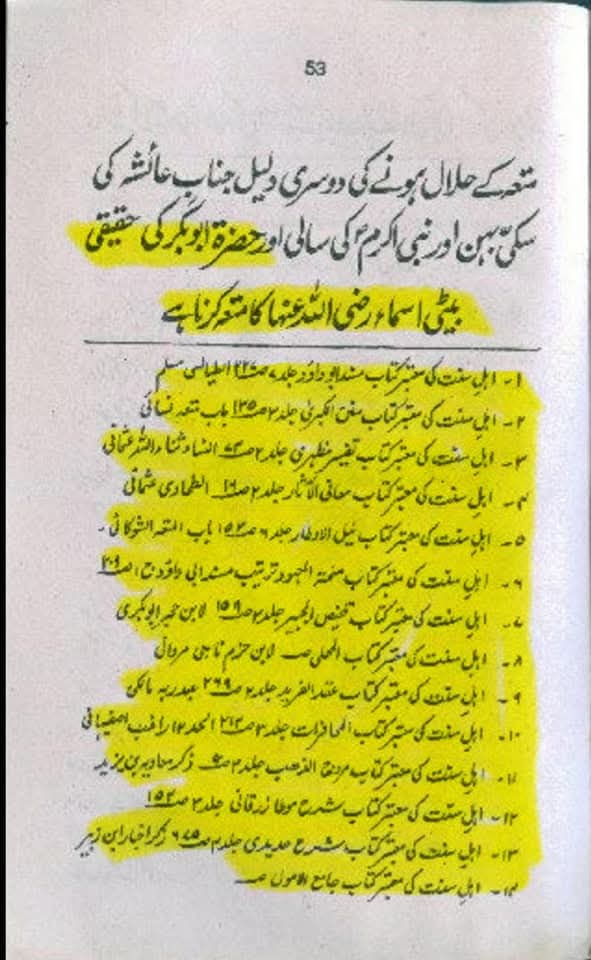 53
متعہ کے حلال ہونے کی دوسری دلیل جناب عائشہ کی
سگی بہن اور نبی اکرمؐ کی سالی اور حضرۃ ابوبکر کی حقیقی
بیٹی اسماء رضی اللہ عنہا کا متعہ کرنا ہے
۱۔ اہل سنت کی معتبر کتاب مسند ابو داؤد جلد ۷ ص ۲۲۷ الطیالسی مسلم
۲۔ اہل سنت کی معتبر کتاب سنن الکبریٰ جلد ۲ ص ۱۳۵ باب متعہ نسائی
۳۔ اہل سنت کی معتبر کتاب تفسیر مظہری جلد ۲ ص ۷۴ النساء ثناء اللہ عثمانی
۴۔ اہل سنت کی معتبر کتاب معانی الآثار جلد ۲ ص ۱۶ الطحاوی عثمانی
۵۔ اہل سنت کی معتبر کتاب نیل الاوطار جلد ۶ ص ۱۵۳ باب المتعہ الشوکانی۔
۶۔ اہل سنت کی معتبر کتاب منحۃ المعبود ترتیب مسند ابی داؤد ج ۱ ص ۲۰۹
۷۔ اہل سنت کی معتبر کتاب تلخیص الحبیر جلد ۲ ص ۱۵۹ لابن حجر
۸۔ اہل سنت کی معتبر کتاب المحلی ص لابن حزم ناصبی مروانی
۹۔ اہل سنت کی معتبر کتاب عقد الفرید جلد ۲ ص ۲۶۹ عبدربہ مالکی
۱۰۔ اہل سنت کی معتبر کتاب المحاضرات جلد ۳ ص ۲۱۴ الحد ۱۲ راغب اصفہانی
۱۱۔ اہل سنت کی معتبر کتاب مروج الذہب جلد ۳ ص ذکر معاویہ بن یزید
۱۲۔ اہل سنت کی معتبر کتاب شرح موطا زرقانی جلد ۲ ص ۱۵۴
۱۳۔ اہل سنت کی معتبر کتاب شرح حدیدی جلد ۲ ص ۶۷۵ ذکر اخبار ابن زبیر
۱۴۔ اہل سنت کی معتبر کتاب جامع الاصول ص